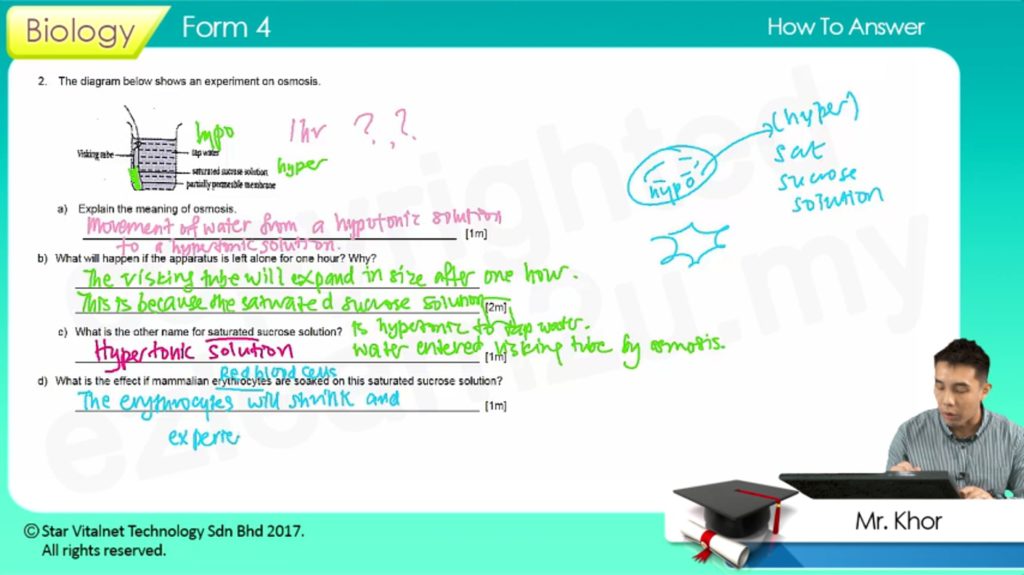 Biology Form 4
How To Answer
2. The diagram below shows an experiment on osmosis.
hypo
1hr ? , ?
(hyper)
sat
sucrose
solution
hypo
Visking tube
tap water
saturated sucrose solution
hyper
partially permeable membrane
a) Explain the meaning of osmosis.
Movement of water from a hypotonic solution
[1m]
to a hypertonic solution.
b) What will happen if the apparatus is left alone for one hour? Why?
The visking tube will expand in size after one hour.
This is because the saturated sucrose solution
[2m]
is hypertonic to tap water.
c) What is the other name for saturated sucrose solution?
water entered visking tube by osmosis.
Hypertonic solution
[1m]
Red blood cells
d) What is the effect if mammalian erythrocytes are soaked on this saturated sucrose solution?
The erythrocytes will shrink and
[1m]
experie
copyrighted
ezlearn2u.my
Mr. Khor
© Star Vitalnet Technology Sdn Bhd 2017.
All rights reserved.